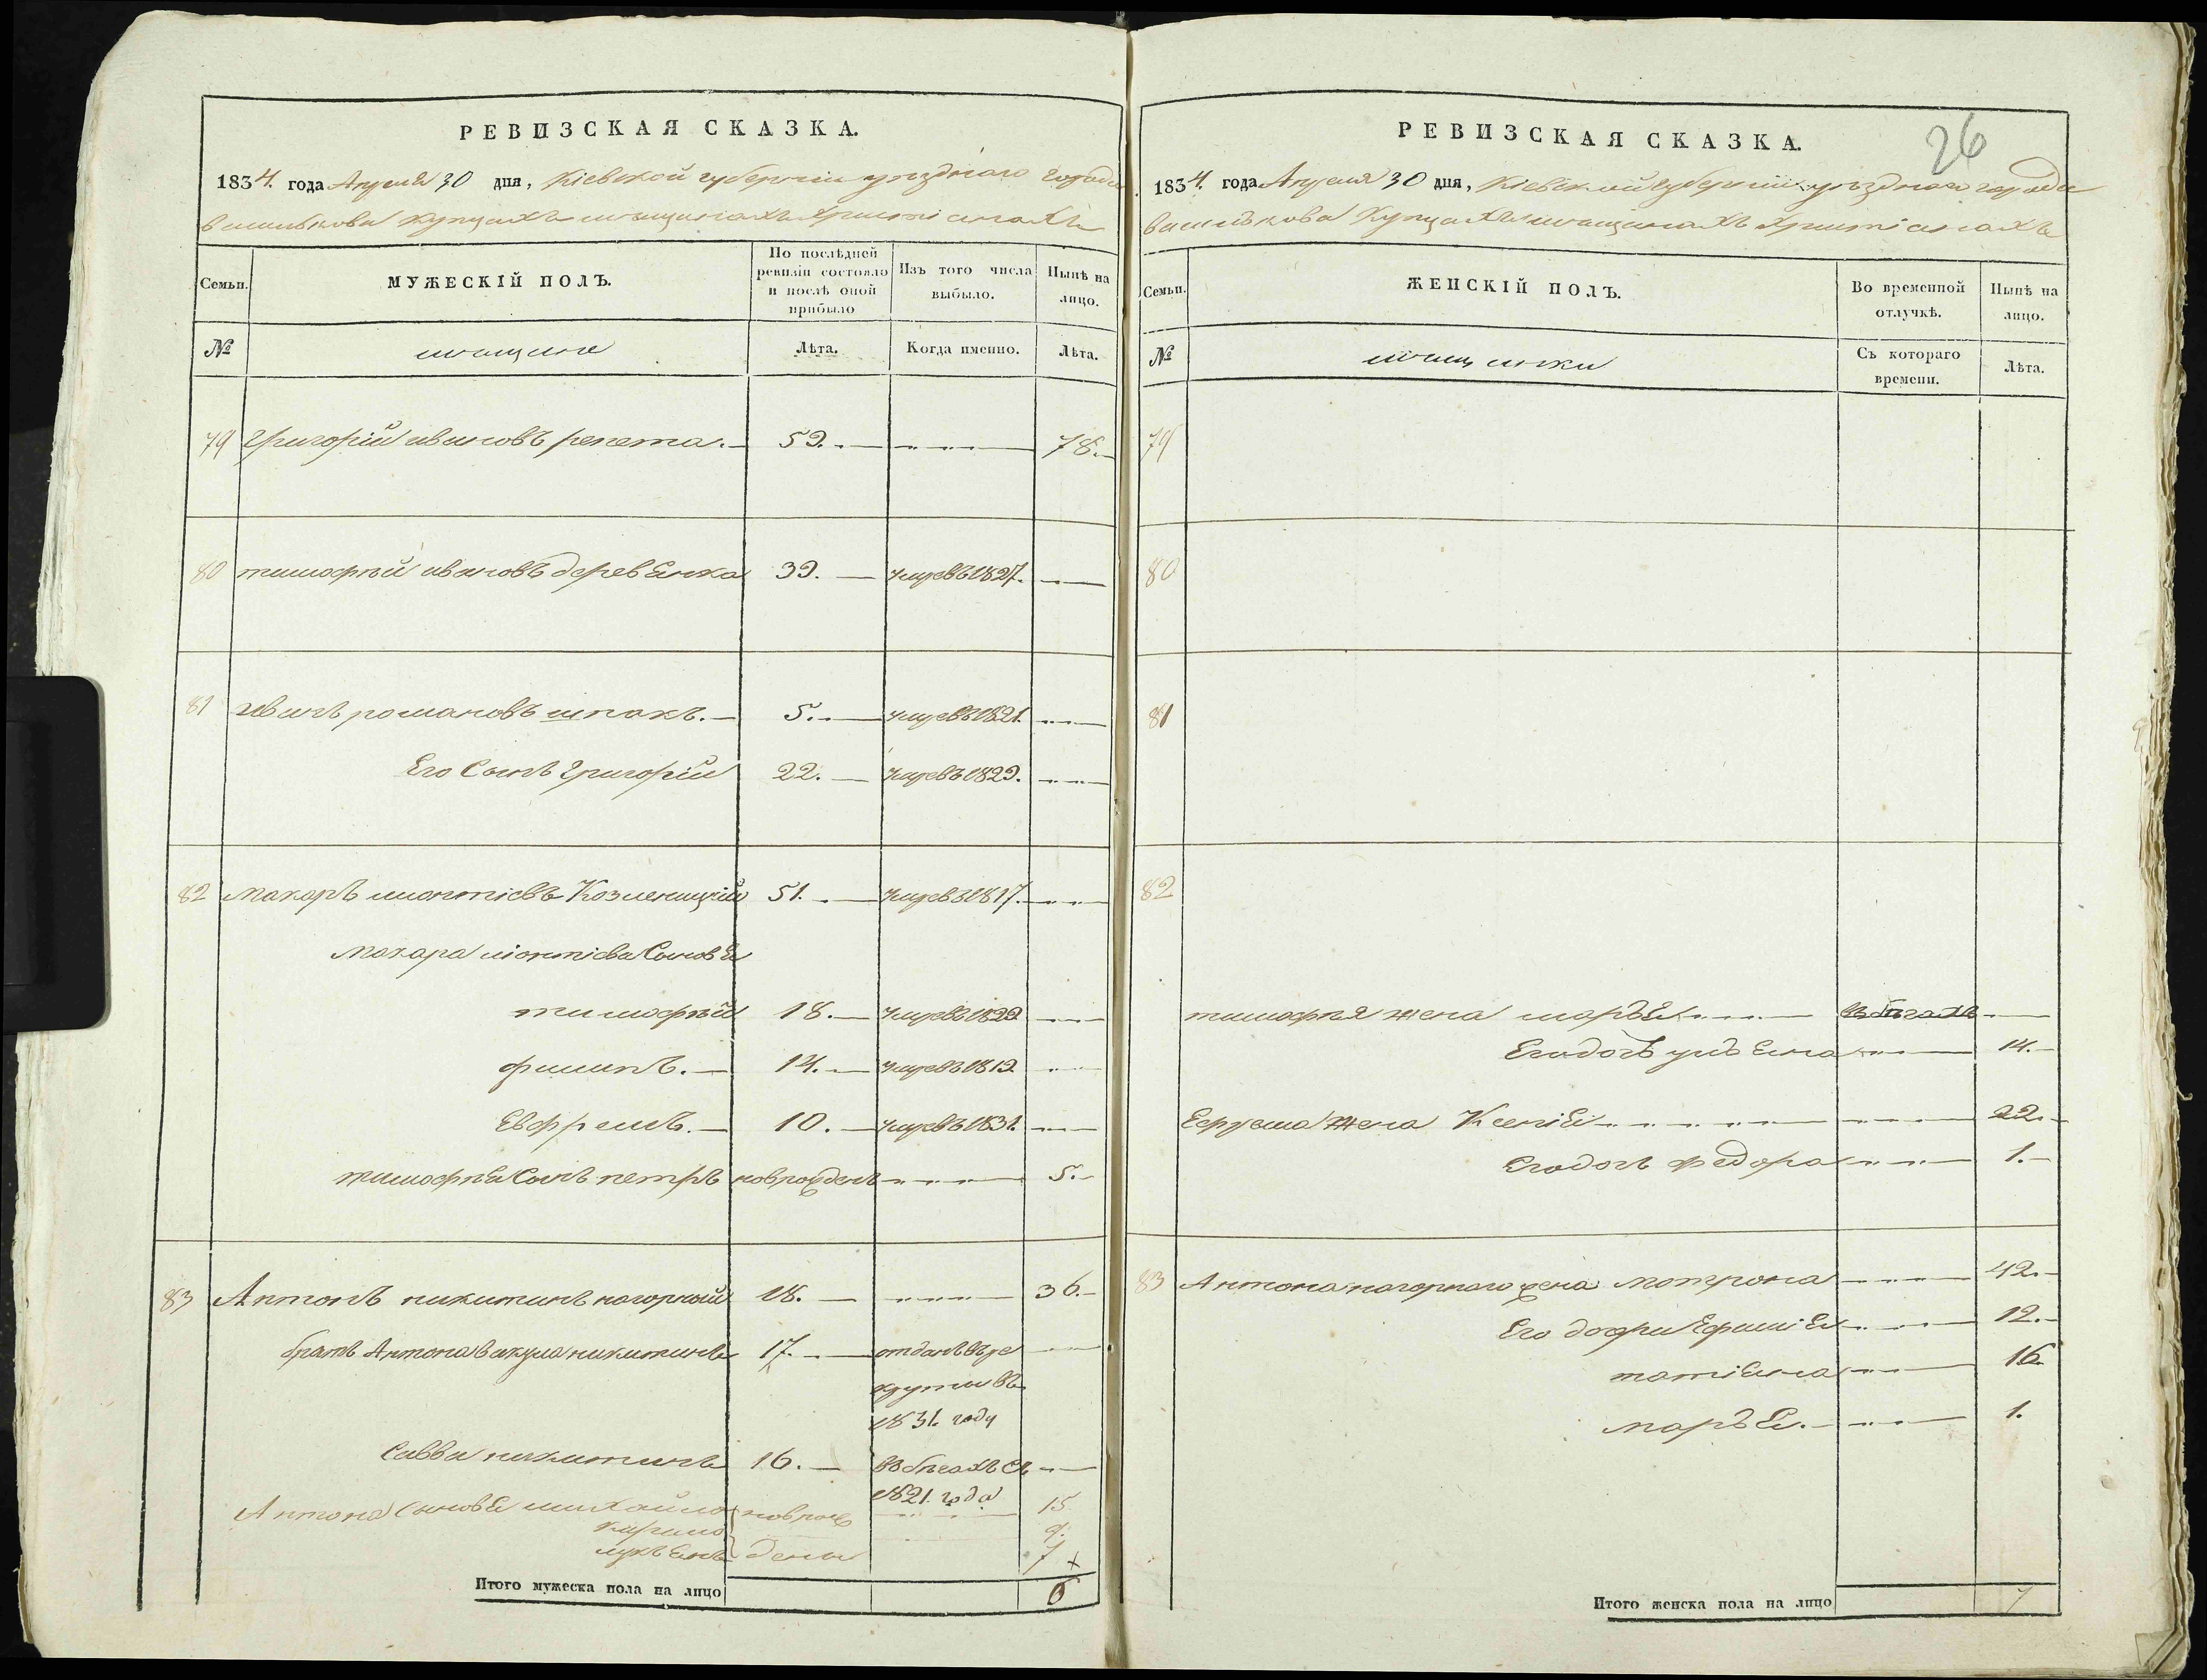 РЕВИЗСКАЯ СКАЗКА.
1834. года Апреля 30 дня, Кіевской губерніи уѣзднаго города
василькова купцахъ мѣщанахъ христіанахъ
Семьи. МУЖЕСКІЙ ПОЛЪ. По послѣдней ревизіи состояло и послѣ оной прибыло Изъ того числа выбыло. Нынѣ на лицо.
№ мѣщане Лѣта. Когда именно. Лѣта.
79 Григорій ивановъ репета. 59. 78.
80 тимофѣй ивановъ деревянка 39. умре въ 1827.
81 иванъ романовъ шпакъ. 5. умре въ 1821.
Его Сынъ Григорій 22. умре въ 1829.
82 Макаръ Козленицкій 51. умре въ 1817.
Макара Сыновья
тимофѣй 18. умре въ 1829
филипъ. 14. умре въ 1819
Евфремъ. 10. умре въ 1831.
тимофѣя Сынъ петръ новрожденъ 5.
83 Антонъ никитинъ нагорный 18. 36.
братъ Антона вакула никитинъ 17. отданъ въ ре
круты въ
1831. году
Савва никитинъ 16. въ бѣгахъ съ
1821. года
Антона Сыновья михайло новрож 15
кирило 9.
лукьянъ дены 7 x
Итого мужеска пола на лицо 6
26
РЕВИЗСКАЯ СКАЗКА.
1834. года Апреля 30 дня, Кіевской губерніи уѣзднаго города
василькова Купцахъ мѣщанахъ христіанахъ
Семьи. ЖЕНСКІЙ ПОЛЪ. Во временной отлучкѣ. Нынѣ на лицо.
№ мѣщанки Съ котораго времени. Лѣта.
79
80
81
82
тимофѣя жена марья въ бѣгахъ
Его дочь ульяна 14.
Ефрема жена Ксенія 22.
Его дочь федора 1.
83 Антона нагорнаго жена мотрона 42.
Его дочери Ефимія 12.
татіяна 16
марья. 1.
Итого женска пола на лицо 7